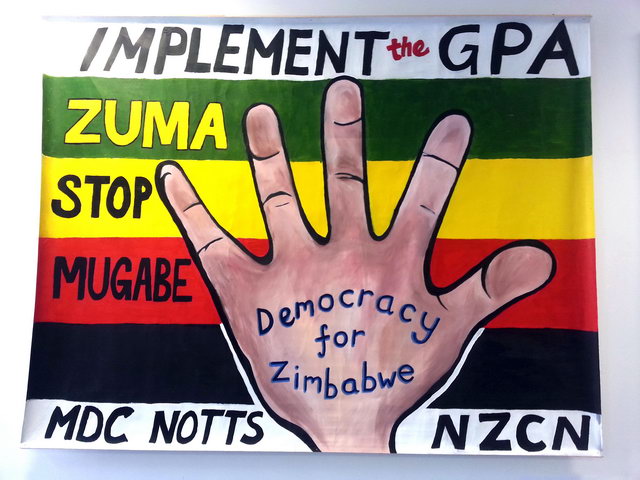 IMPLEMENT the GPA
ZUMA
STOP
MUGABE
Democracy
for
Zimbabwe
MDC NOTTS
NZCN